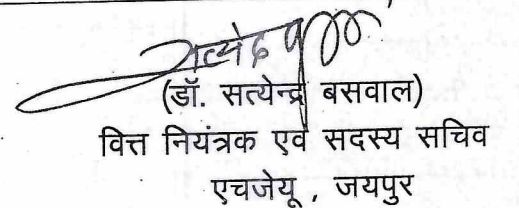 (डॉ. सत्येन्द्र बसवाल)
वित्त नियंत्रक एवं सदस्य सचिव
एचजेयू , जयपुर